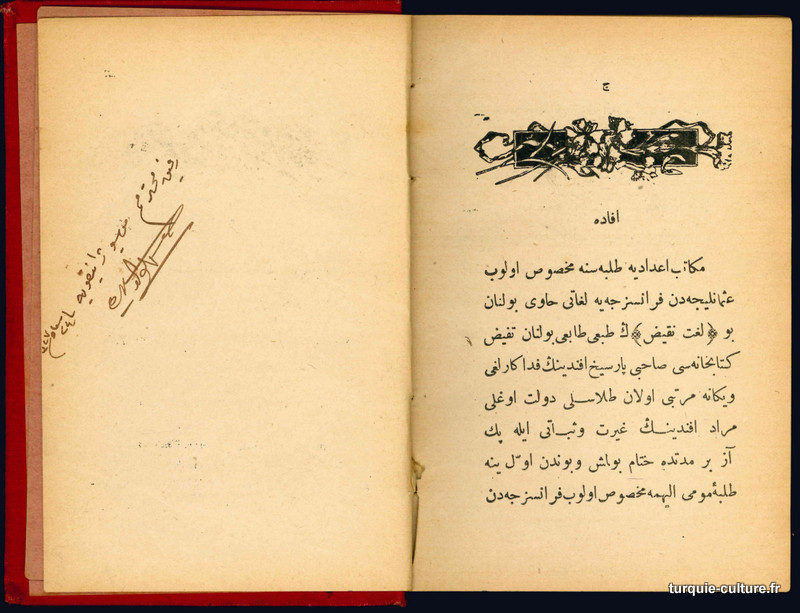 ج
افاده
مكاتب اعدادیه طلبه‌سنه مخصوص اولوب
عثمانلیجه‌دن فرانسزجه‌یه لغاتی حاوی بولنان
بو ﴿لغت نقیض﴾ ك طبعی طابعی بولنان تفیض
كتابخانه‌سی صاحبی بارسیخ افندینك فداكارلغی
ویكانه مرتبی اولان طلاسلی دولت اوغلی
مراد افندینـك غیرت وثبـاتی ایله پك
آز بر مدتده ختام بولمش وبوندن اوّل ینه
طلبۀ مومی الیهمه مخصوص اولوب فرانسزجه‌دن
turquie-culture.fr